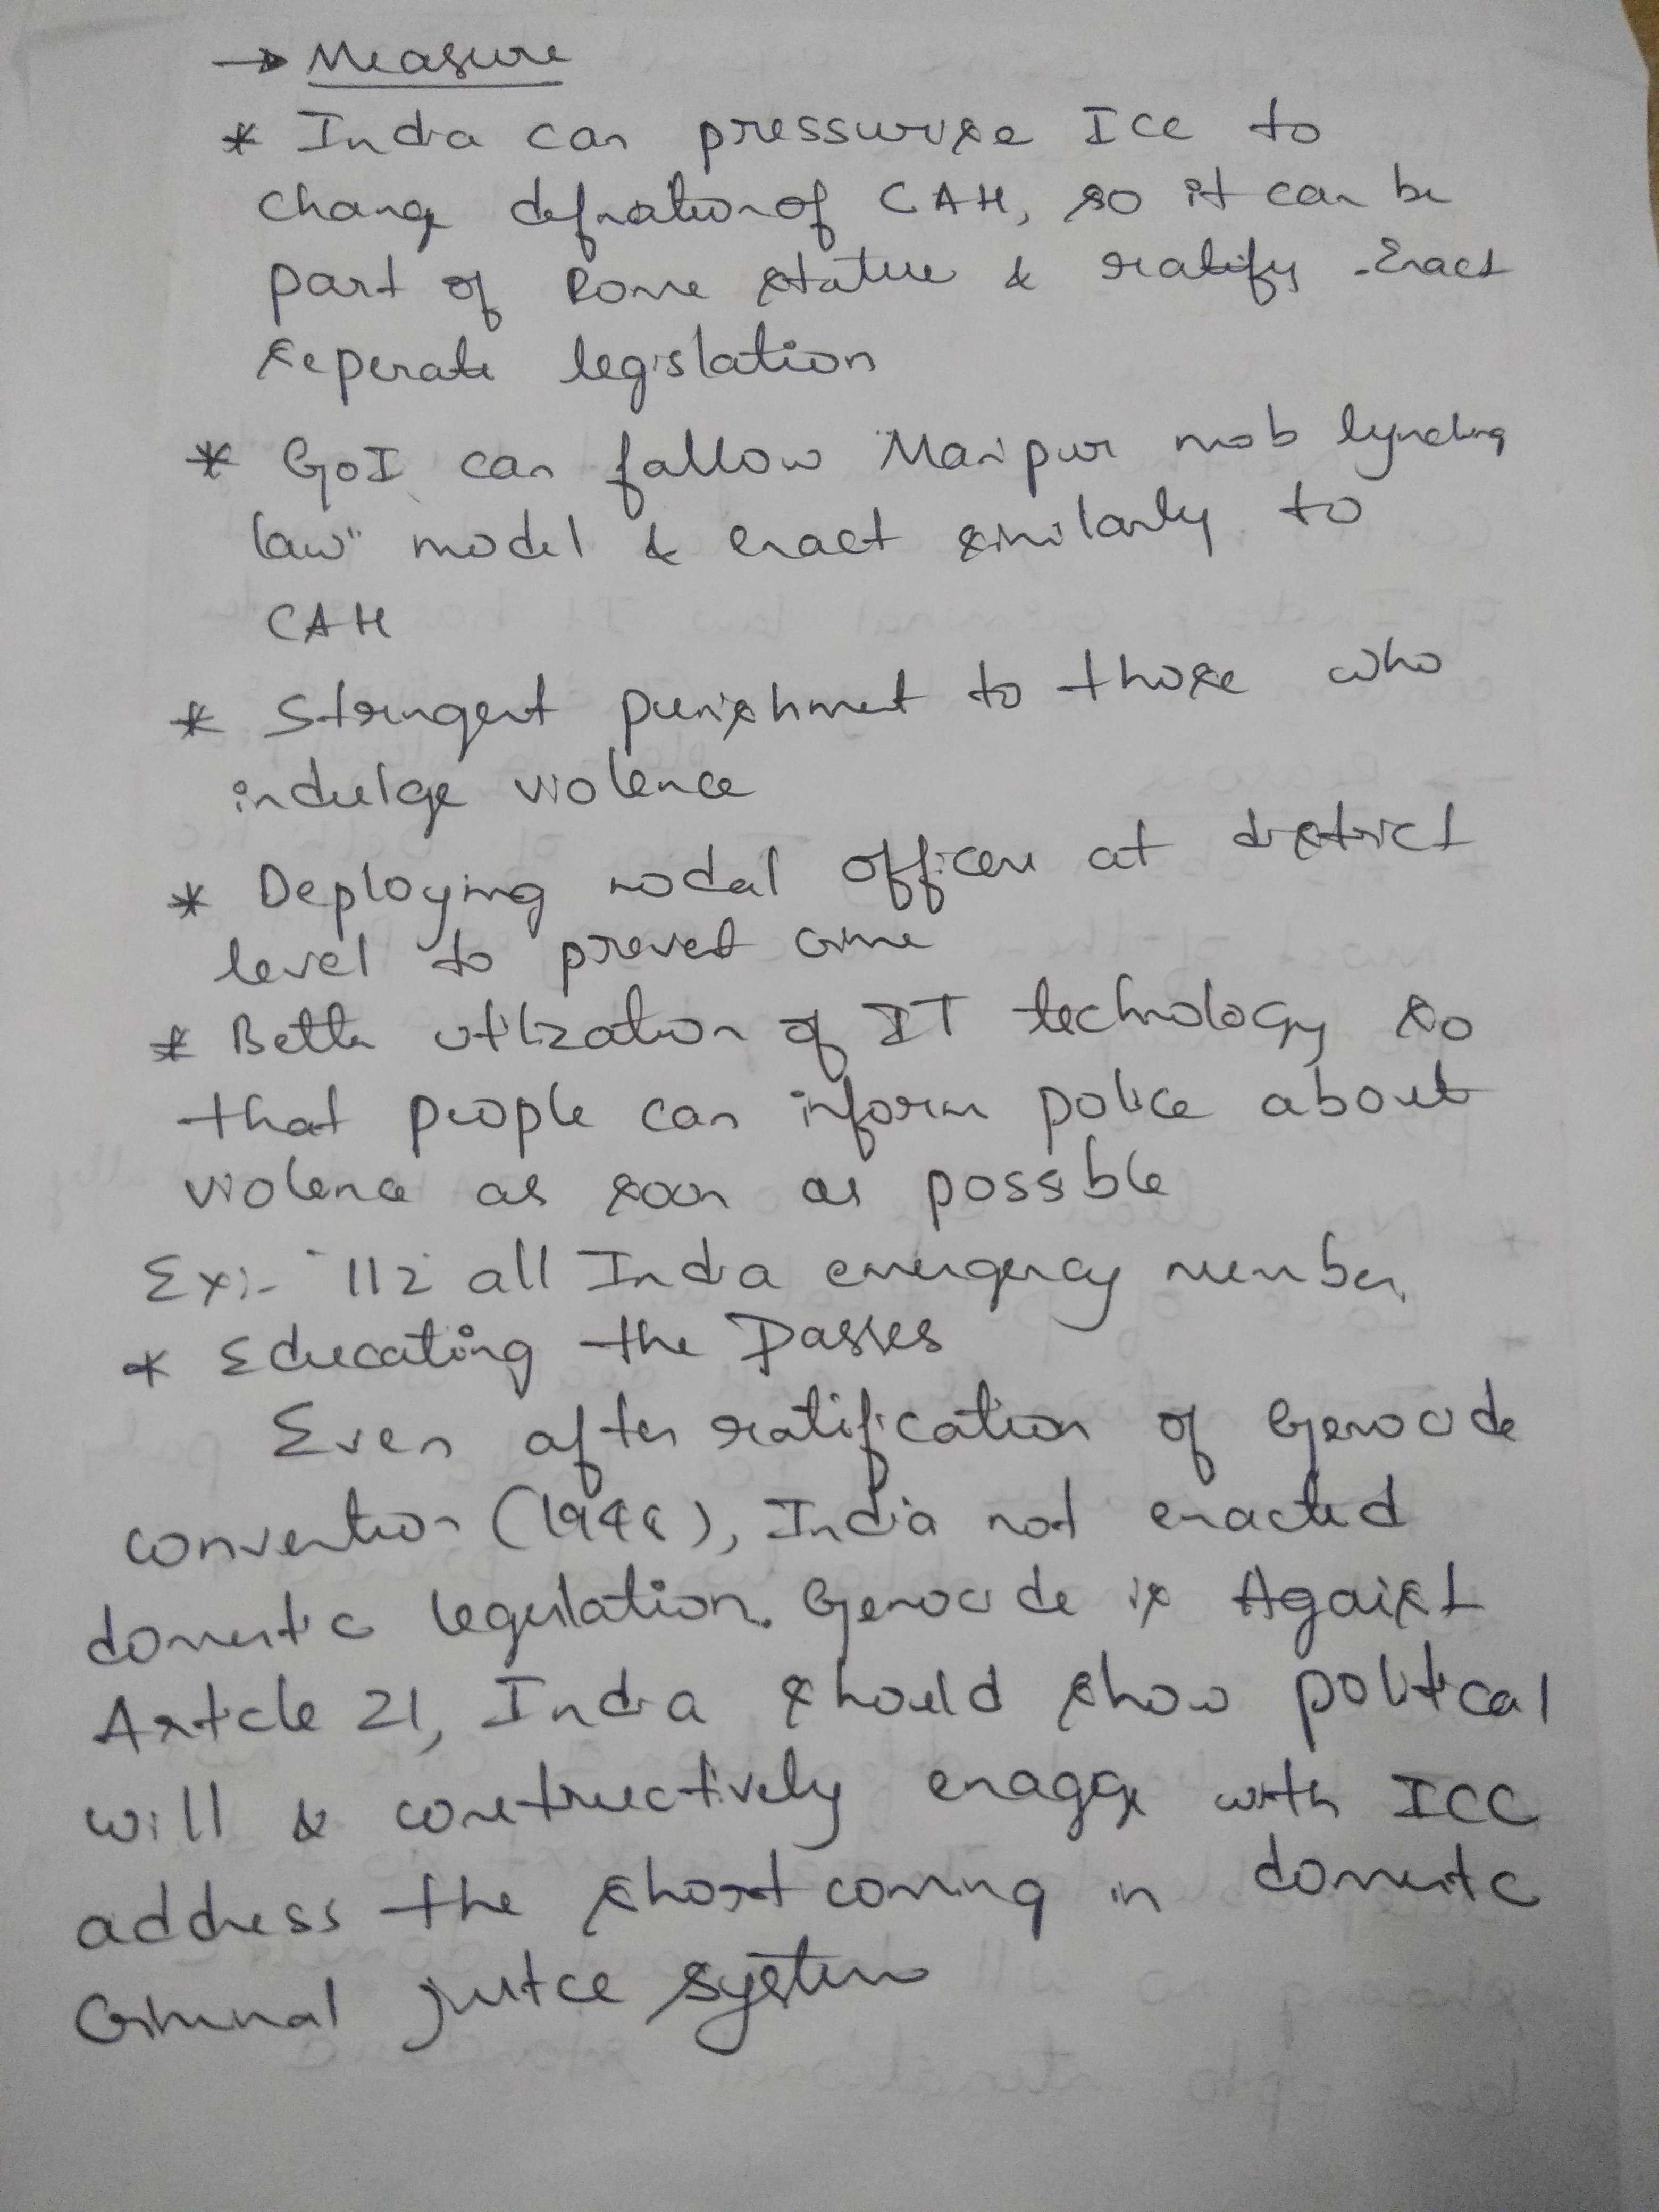 → Measure
* India can pressurise Icc to
change defination of CAH, so it can be
part of Rome statue & ratify. Enact
seperate legislation
* GoI can fallow "Manipur mob lynching
law" model & enact similarly to
CAH
* Stringent punishment to those who
indulge violence
* Deploying nodal officer at district
level to prevent crime
* Better utilization of IT technology so
that people can inform police about
violence as soon as possible
Ex:- '112' all India emergency number.
* Educating the Masses
Even after ratification of Genocide
convention (1948), India not enacted
domestic legislation. Genocide is Against
Article 21, India should show political
will & constructively engage with ICC
address the short coming in domestic
Criminal justice system